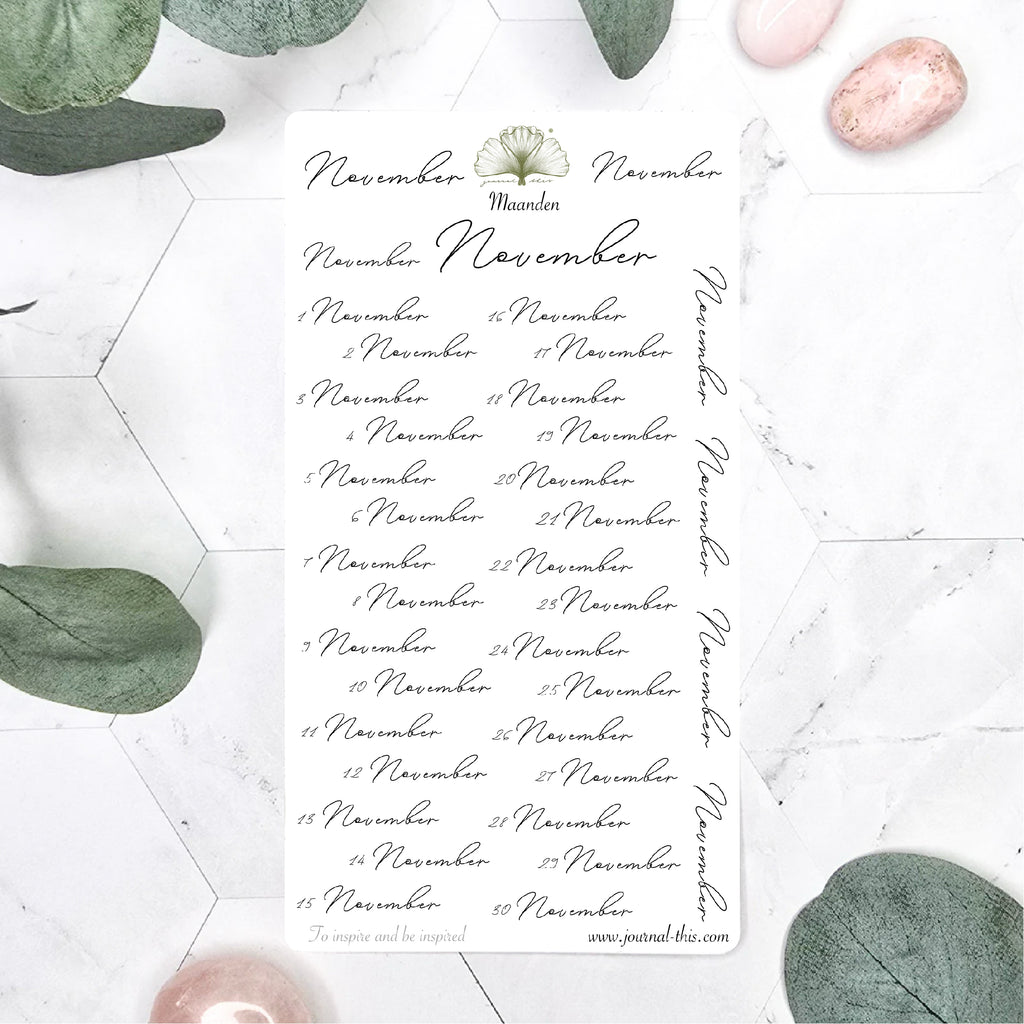 November
journal this
November
Maanden
November
November
1 November
16 November
2 November
17 November
3 November
18 November
4 November
19 November
5 November
20 November
6 November
21 November
7 November
22 November
8 November
23 November
9 November
24 November
10 November
25 November
11 November
26 November
12 November
27 November
13 November
28 November
14 November
29 November
15 November
30 November
November
November
November
November
To inspire and be inspired
www.journal-this.com